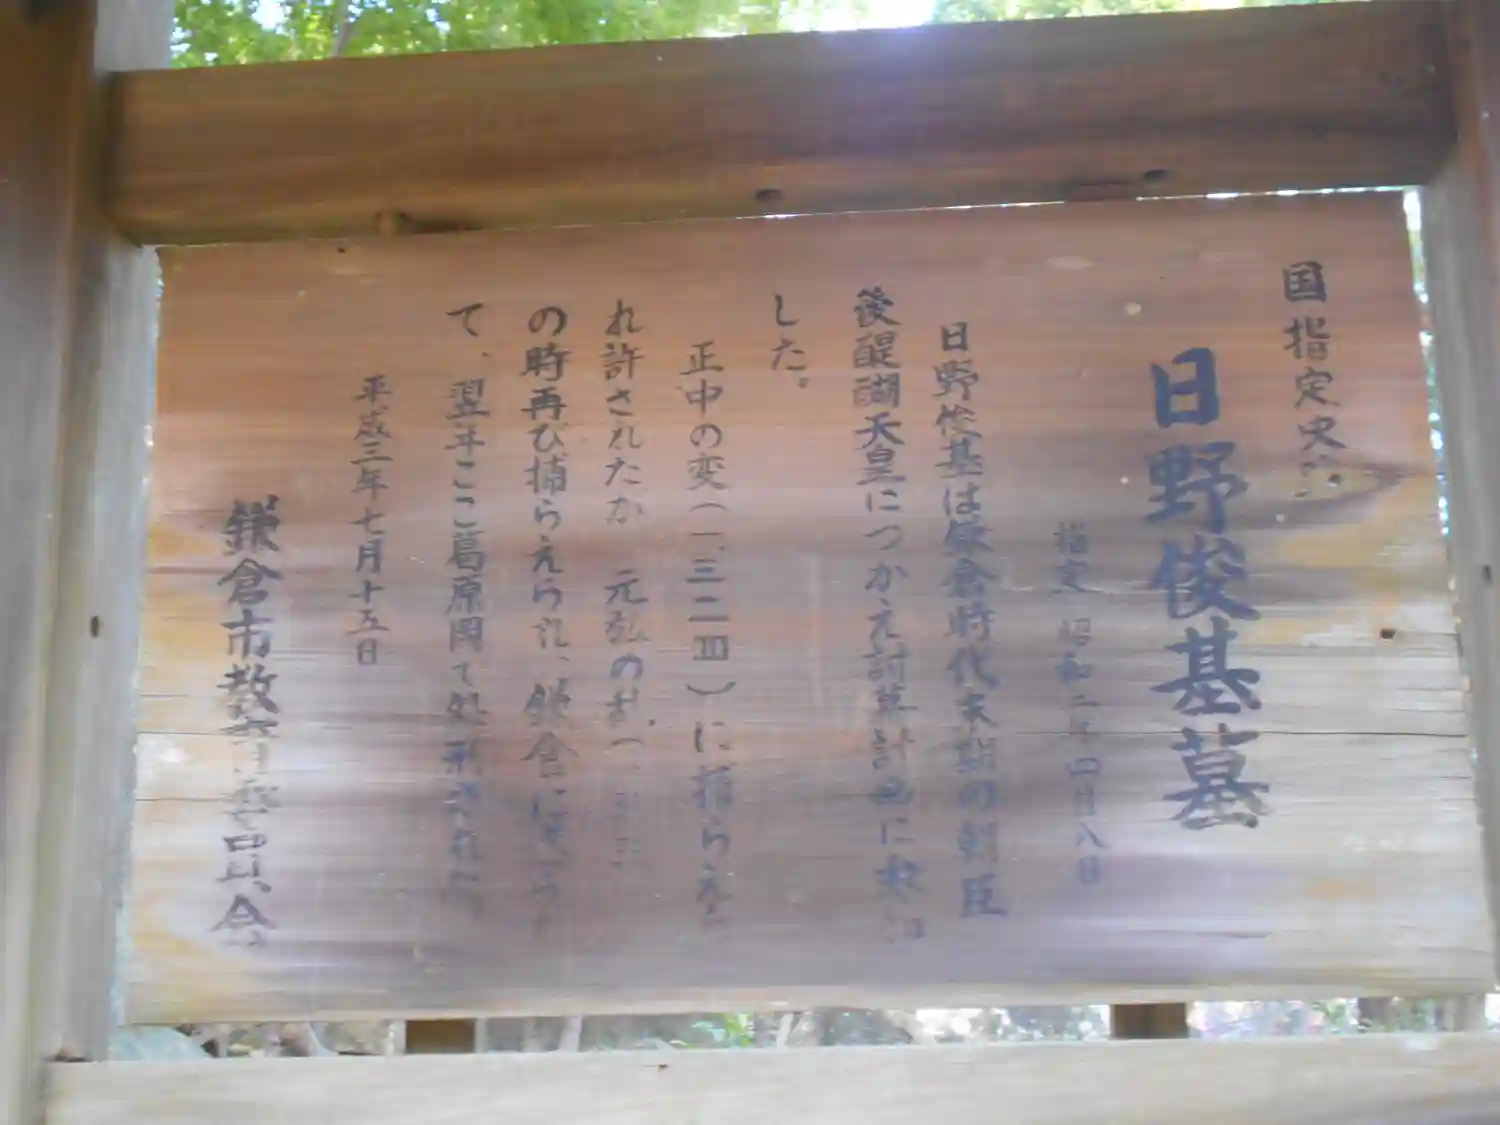 国指定史跡
日野俊基墓
指定 昭和二年四月八日
日野俊基は鎌倉時代末期の朝臣
後醍醐天皇につかえ討幕計画に参加
した。
正中の変(一三二四)に捕らえら
れ許されたが 元弘の乱(
の時再び捕らえられ、鎌倉に送られ
て、翌年ここ葛原岡で処刑された
平成三年七月十五日
鎌倉市教育委員会